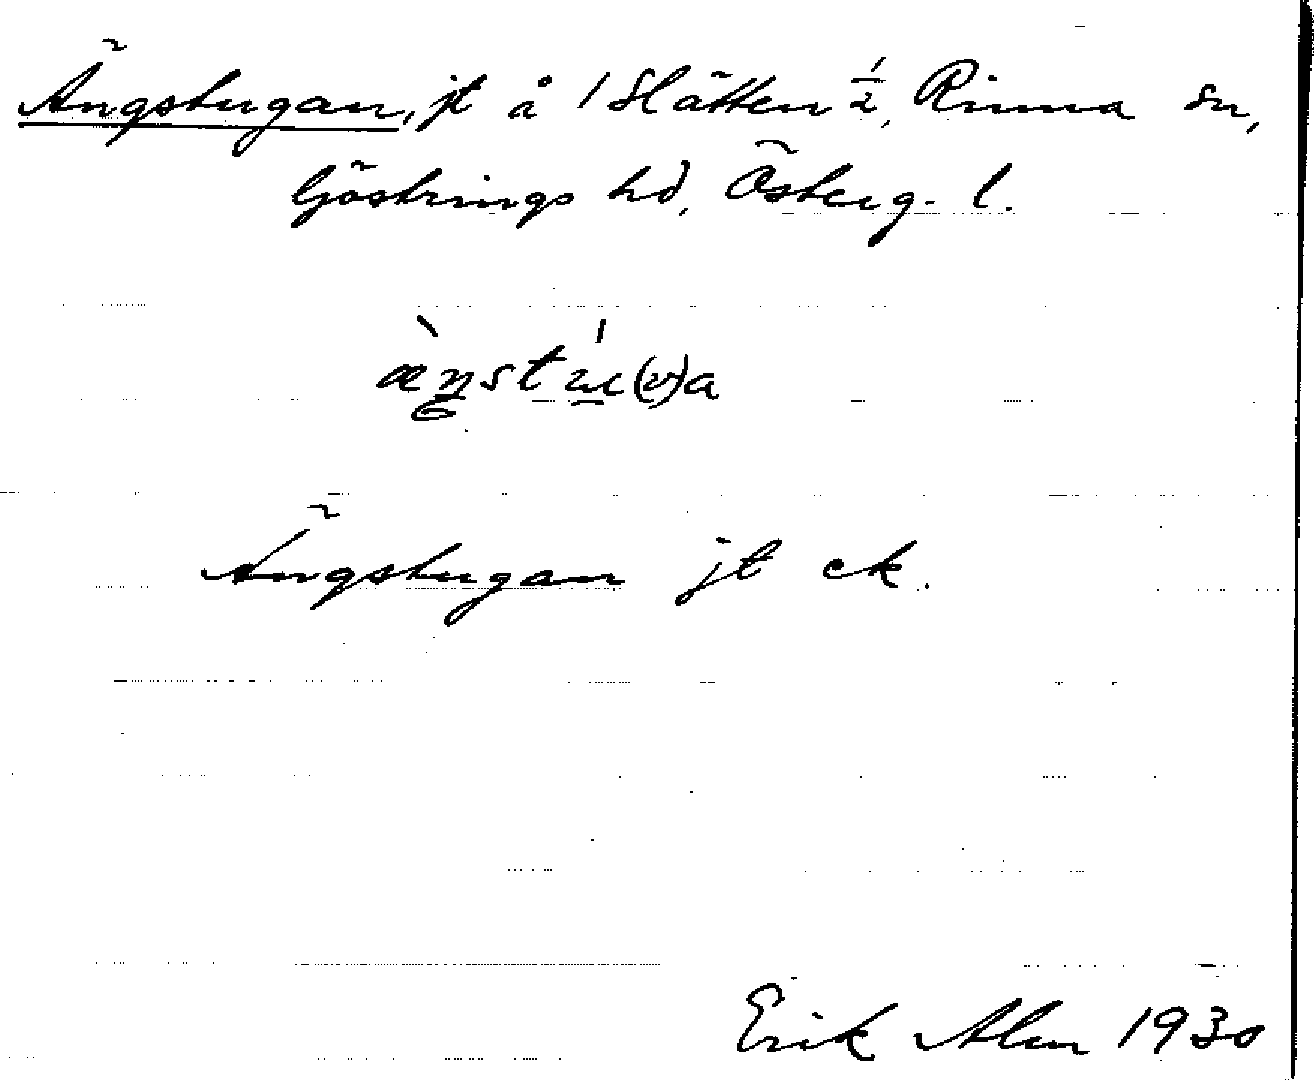 Ängstugan, jt å 1 Slätten ½, Rinna sn,
Göstrings hd, Österg. l.
æ̀ŋstú(v)a
Ängstugan jt ek.
Erik Alm 1930